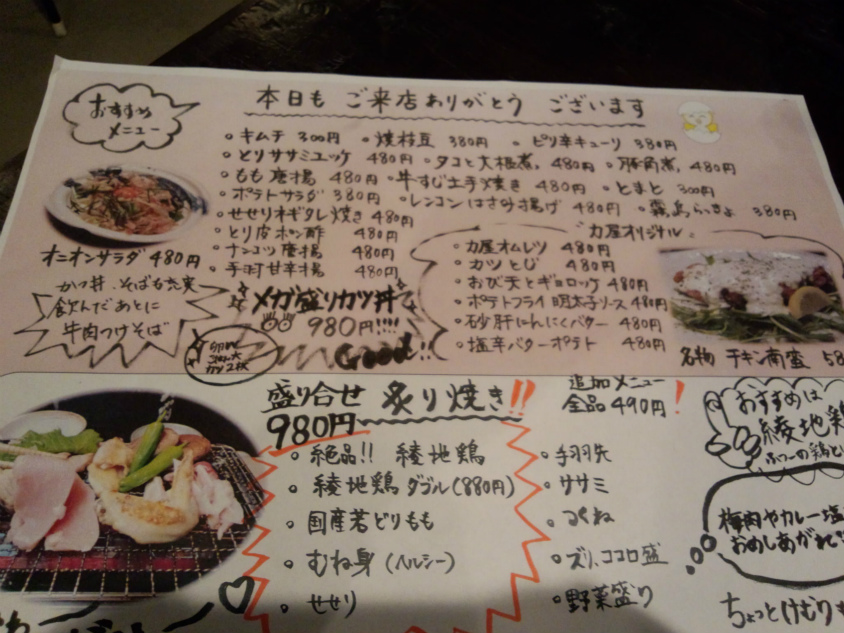 本日も ご来店ありがとう ございます
おすすめ
メニュー
・キムチ 300円 ・焼枝豆 380円 ・ピリ辛キューリ 380円
・とりササミユッケ 480円 ・タコと大根煮 480円 ・豚角煮 480円
・もも唐揚 480円 ・牛すじ土手焼き 480円 ・とまと 300円
・ポテトサラダ 380円 ・レンコンはさみ揚げ 480円 ・霧島らっきょ 380円
・せせりネギタレ焼き 480円
・とり皮ポン酢 480円
・ナンコツ唐揚 480円
・手羽甘辛揚 480円
オニオンサラダ 480円
かつ丼、そばも充実
飲んだあとに
牛肉つけそば
メガ盛りカツ丼
980円!!!!
Good!!
カツ2枚
力屋オリジナル
・力屋オムレツ 480円
・カツとじ 480円
・おび天とギョロッケ 480円
・ポテトフライ明太子ソース 480円
・砂肝にんにくバター 480円
・塩辛バターポテト 480円
名物 チキン南蛮 58
盛り合せ 炙り焼き!!
980円
・絶品!! 綾地鶏
・綾地鶏ダブル(880円)
・国産若どりもも
・むね身(ヘルシー)
・せせり
追加メニュー
全品490円!
・手羽先
・ササミ
・つくね
・ズリ、ココロ盛
・野菜盛り
おすすめは
綾地鶏
ふつーの鶏と
梅肉やカレー塩
おめしあがれ
ちょっとけむり